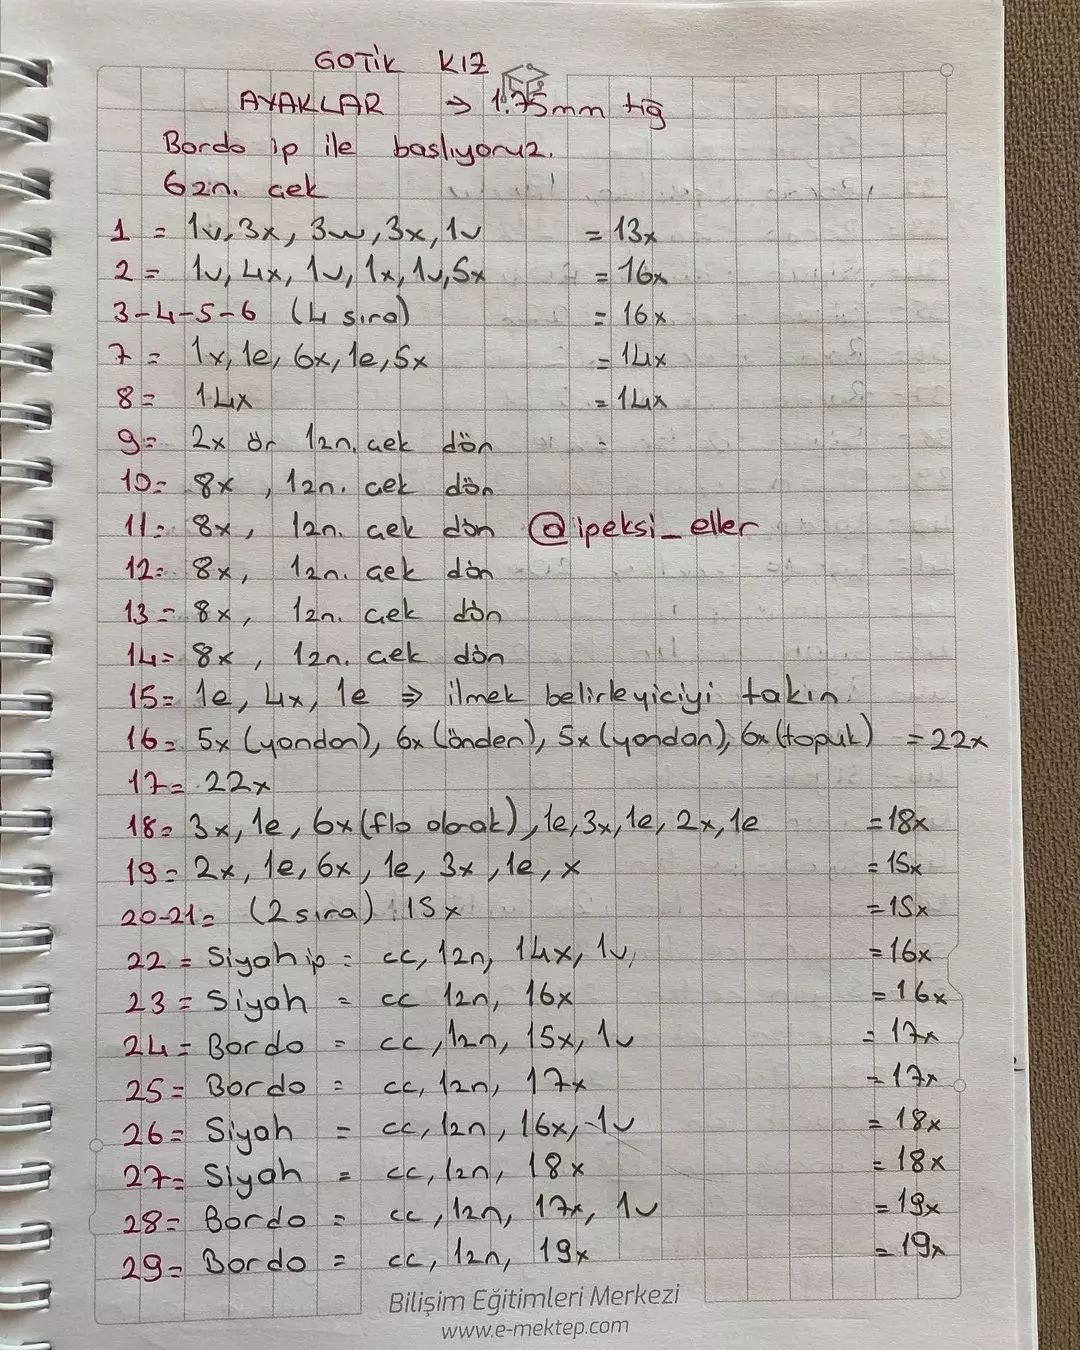 GOTİK KIZ
AYAKLAR → 1.75mm tığ
Bordo ip ile başlıyoruz.
6zn. çek
1 = 1v, 3x, 3w, 3x, 1v = 13x
2 = 1v, 4x, 1v, 1x, 1v, 5x = 16x
3-4-5-6 (4 sıra) = 16x
7 = 1x, 1e, 6x, 1e, 5x = 14x
8 = 14x = 14x
9 = 2x ör 1zn. çek dön
10 = 8x, 1zn. çek dön
11 = 8x, 1zn. çek dön @ipeksi_eller
12 = 8x, 1zn. çek dön
13 = 8x, 1zn. çek dön
14 = 8x, 1zn. çek dön
15 = 1e, 4x, 1e ⇒ ilmek belirleyiciyi takın.
16 = 5x (yandan), 6x (önden), 5x (yandan), 6x (topuk) = 22x
17 = 22x
18 = 3x, 1e, 6x (flo olarak), 1e, 3x, 1e, 2x, 1e = 18x
19 = 2x, 1e, 6x, 1e, 3x, 1e, x = 15x
20-21 = (2 sıra) 15x = 15x
22 = Siyah ip = cc, 1zn, 14x, 1v, = 16x
23 = Siyah = cc 1zn, 16x = 16x
24 = Bordo = cc, 1zn, 15x, 1v = 17x
25 = Bordo = cc, 1zn, 17x = 17x
26 = Siyah = cc, 1zn, 16x, 1v = 18x
27 = Siyah = cc, 1zn, 18x = 18x
28 = Bordo = cc, 1zn, 17x, 1v = 19x
29 = Bordo = cc, 1zn, 19x = 19x
Bilişim Eğitimleri Merkezi
www.e-mektep.com